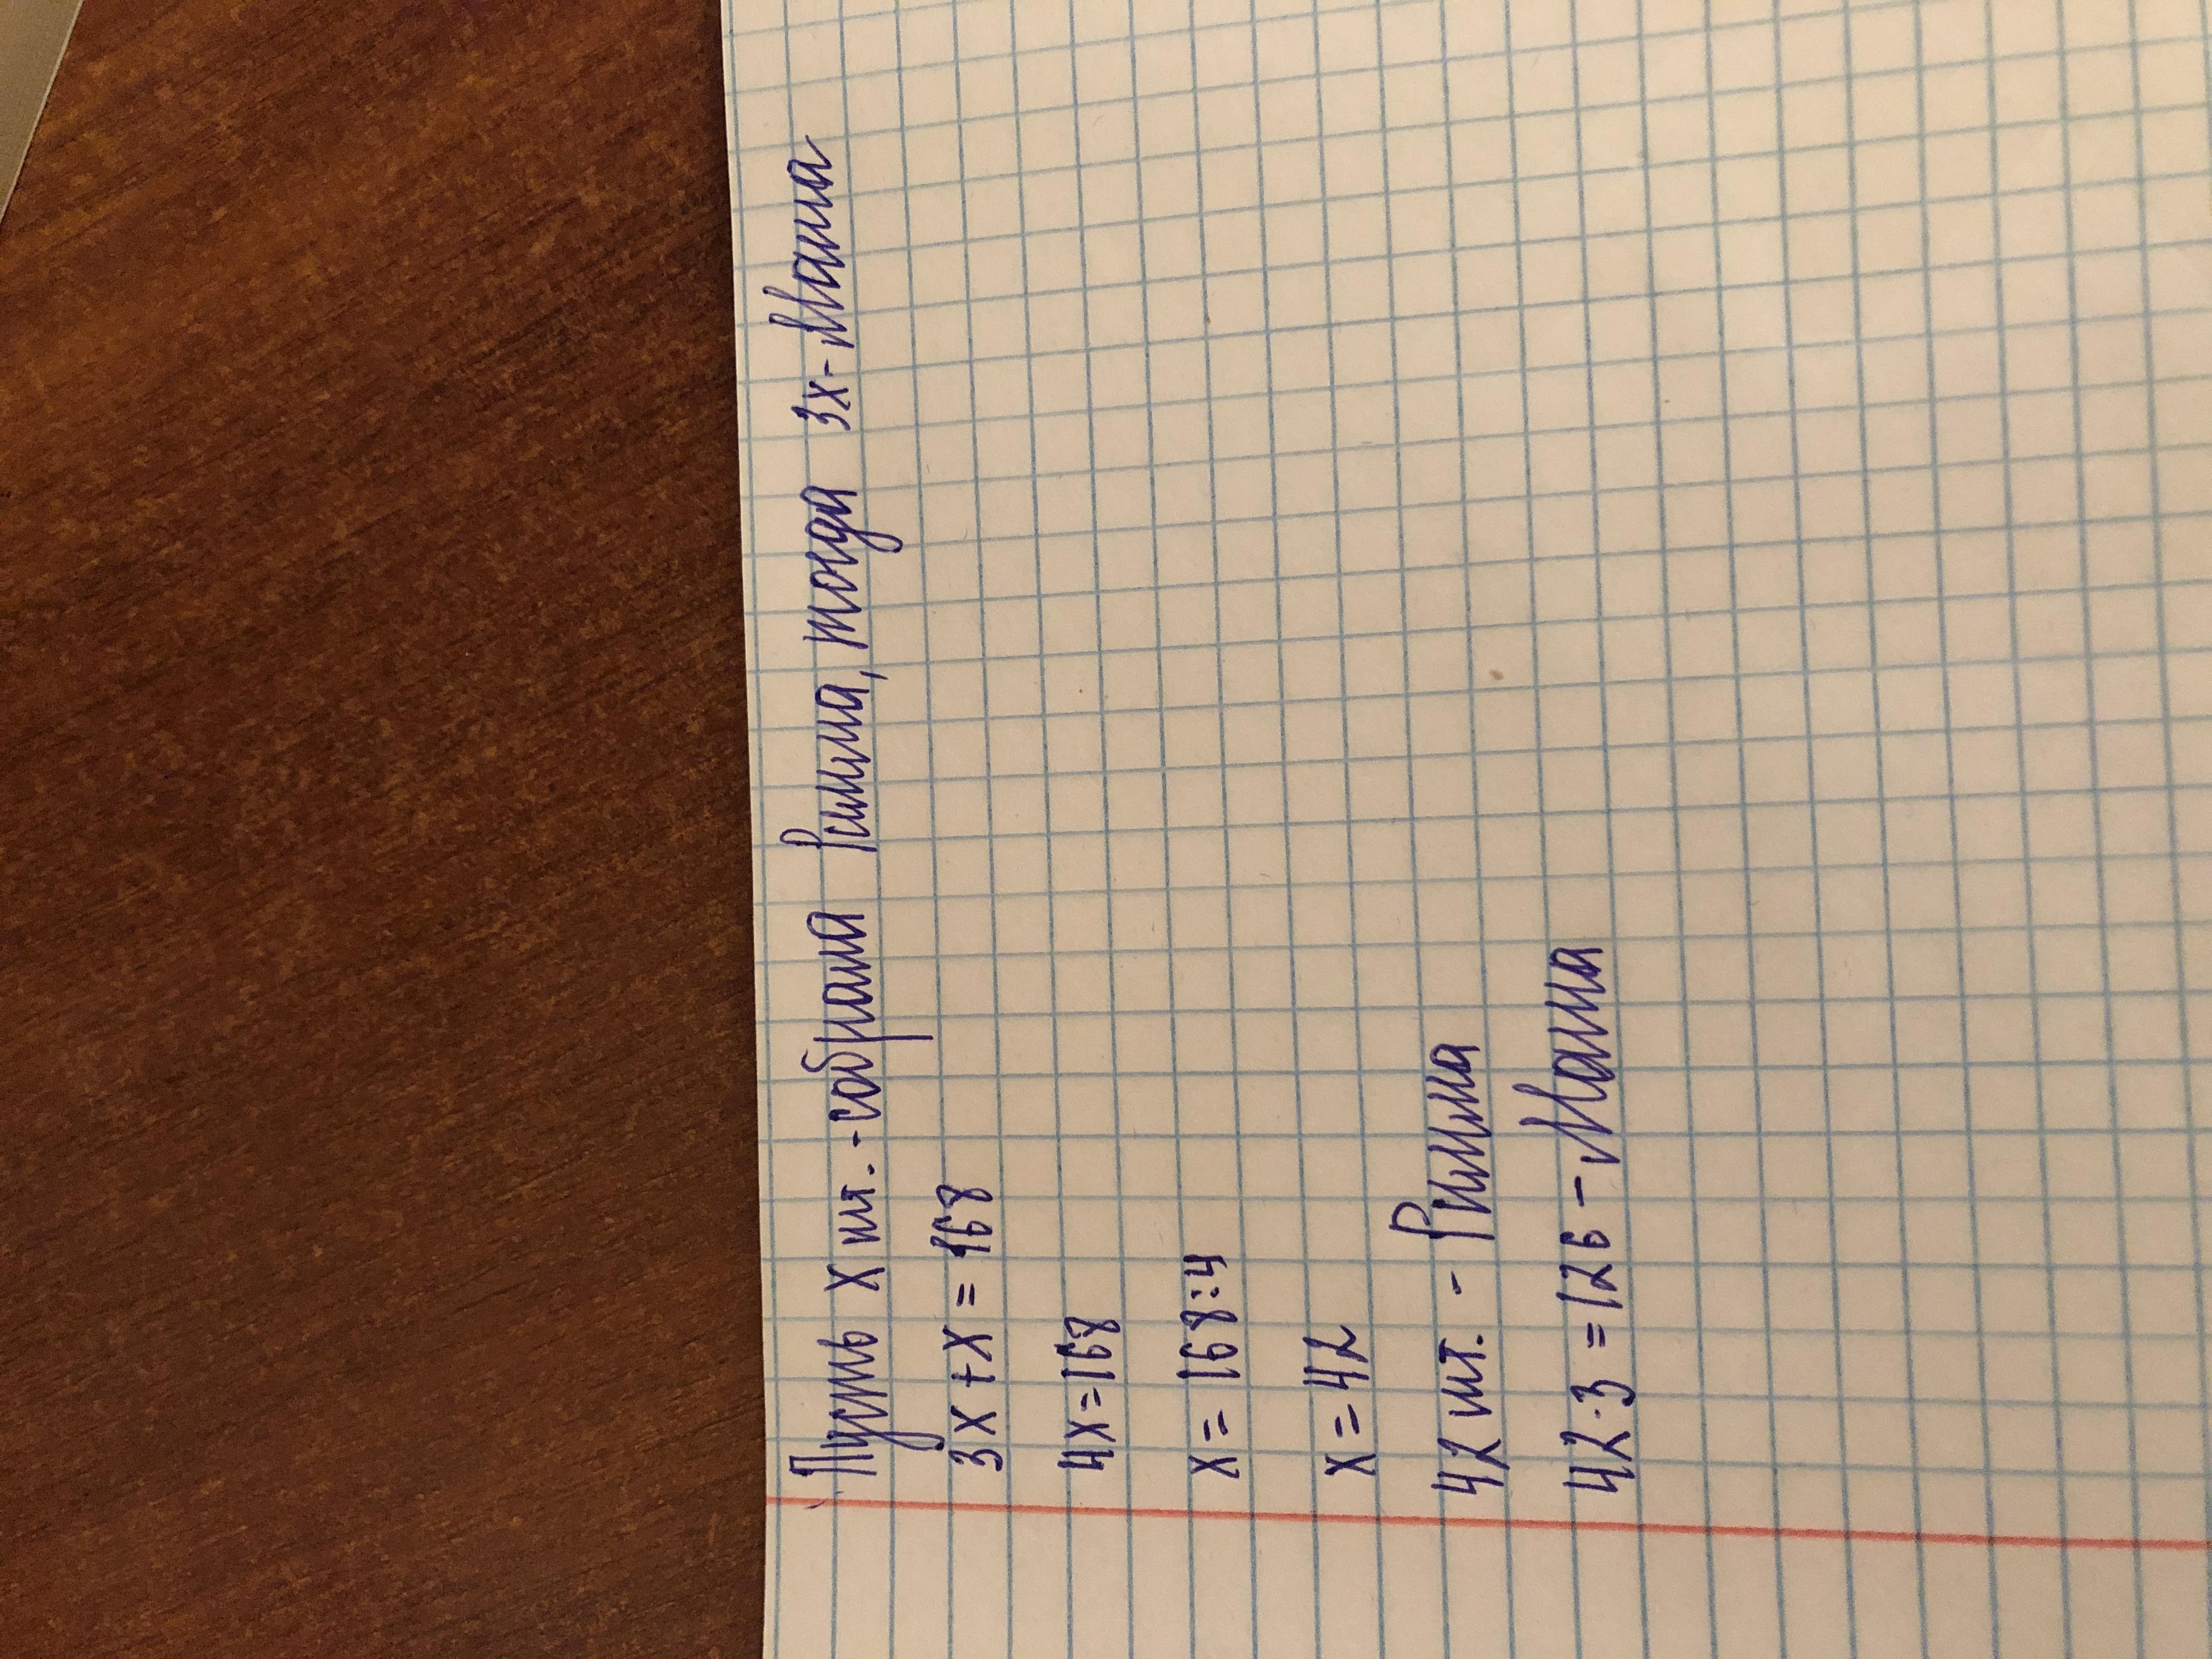 Пусть х шт. - собрала Римма, тогда 3х - Мама
3х + х = 168
4х = 168
х = 168:4
х = 42
42 шт. - Римма
42·3 = 126 - Мама